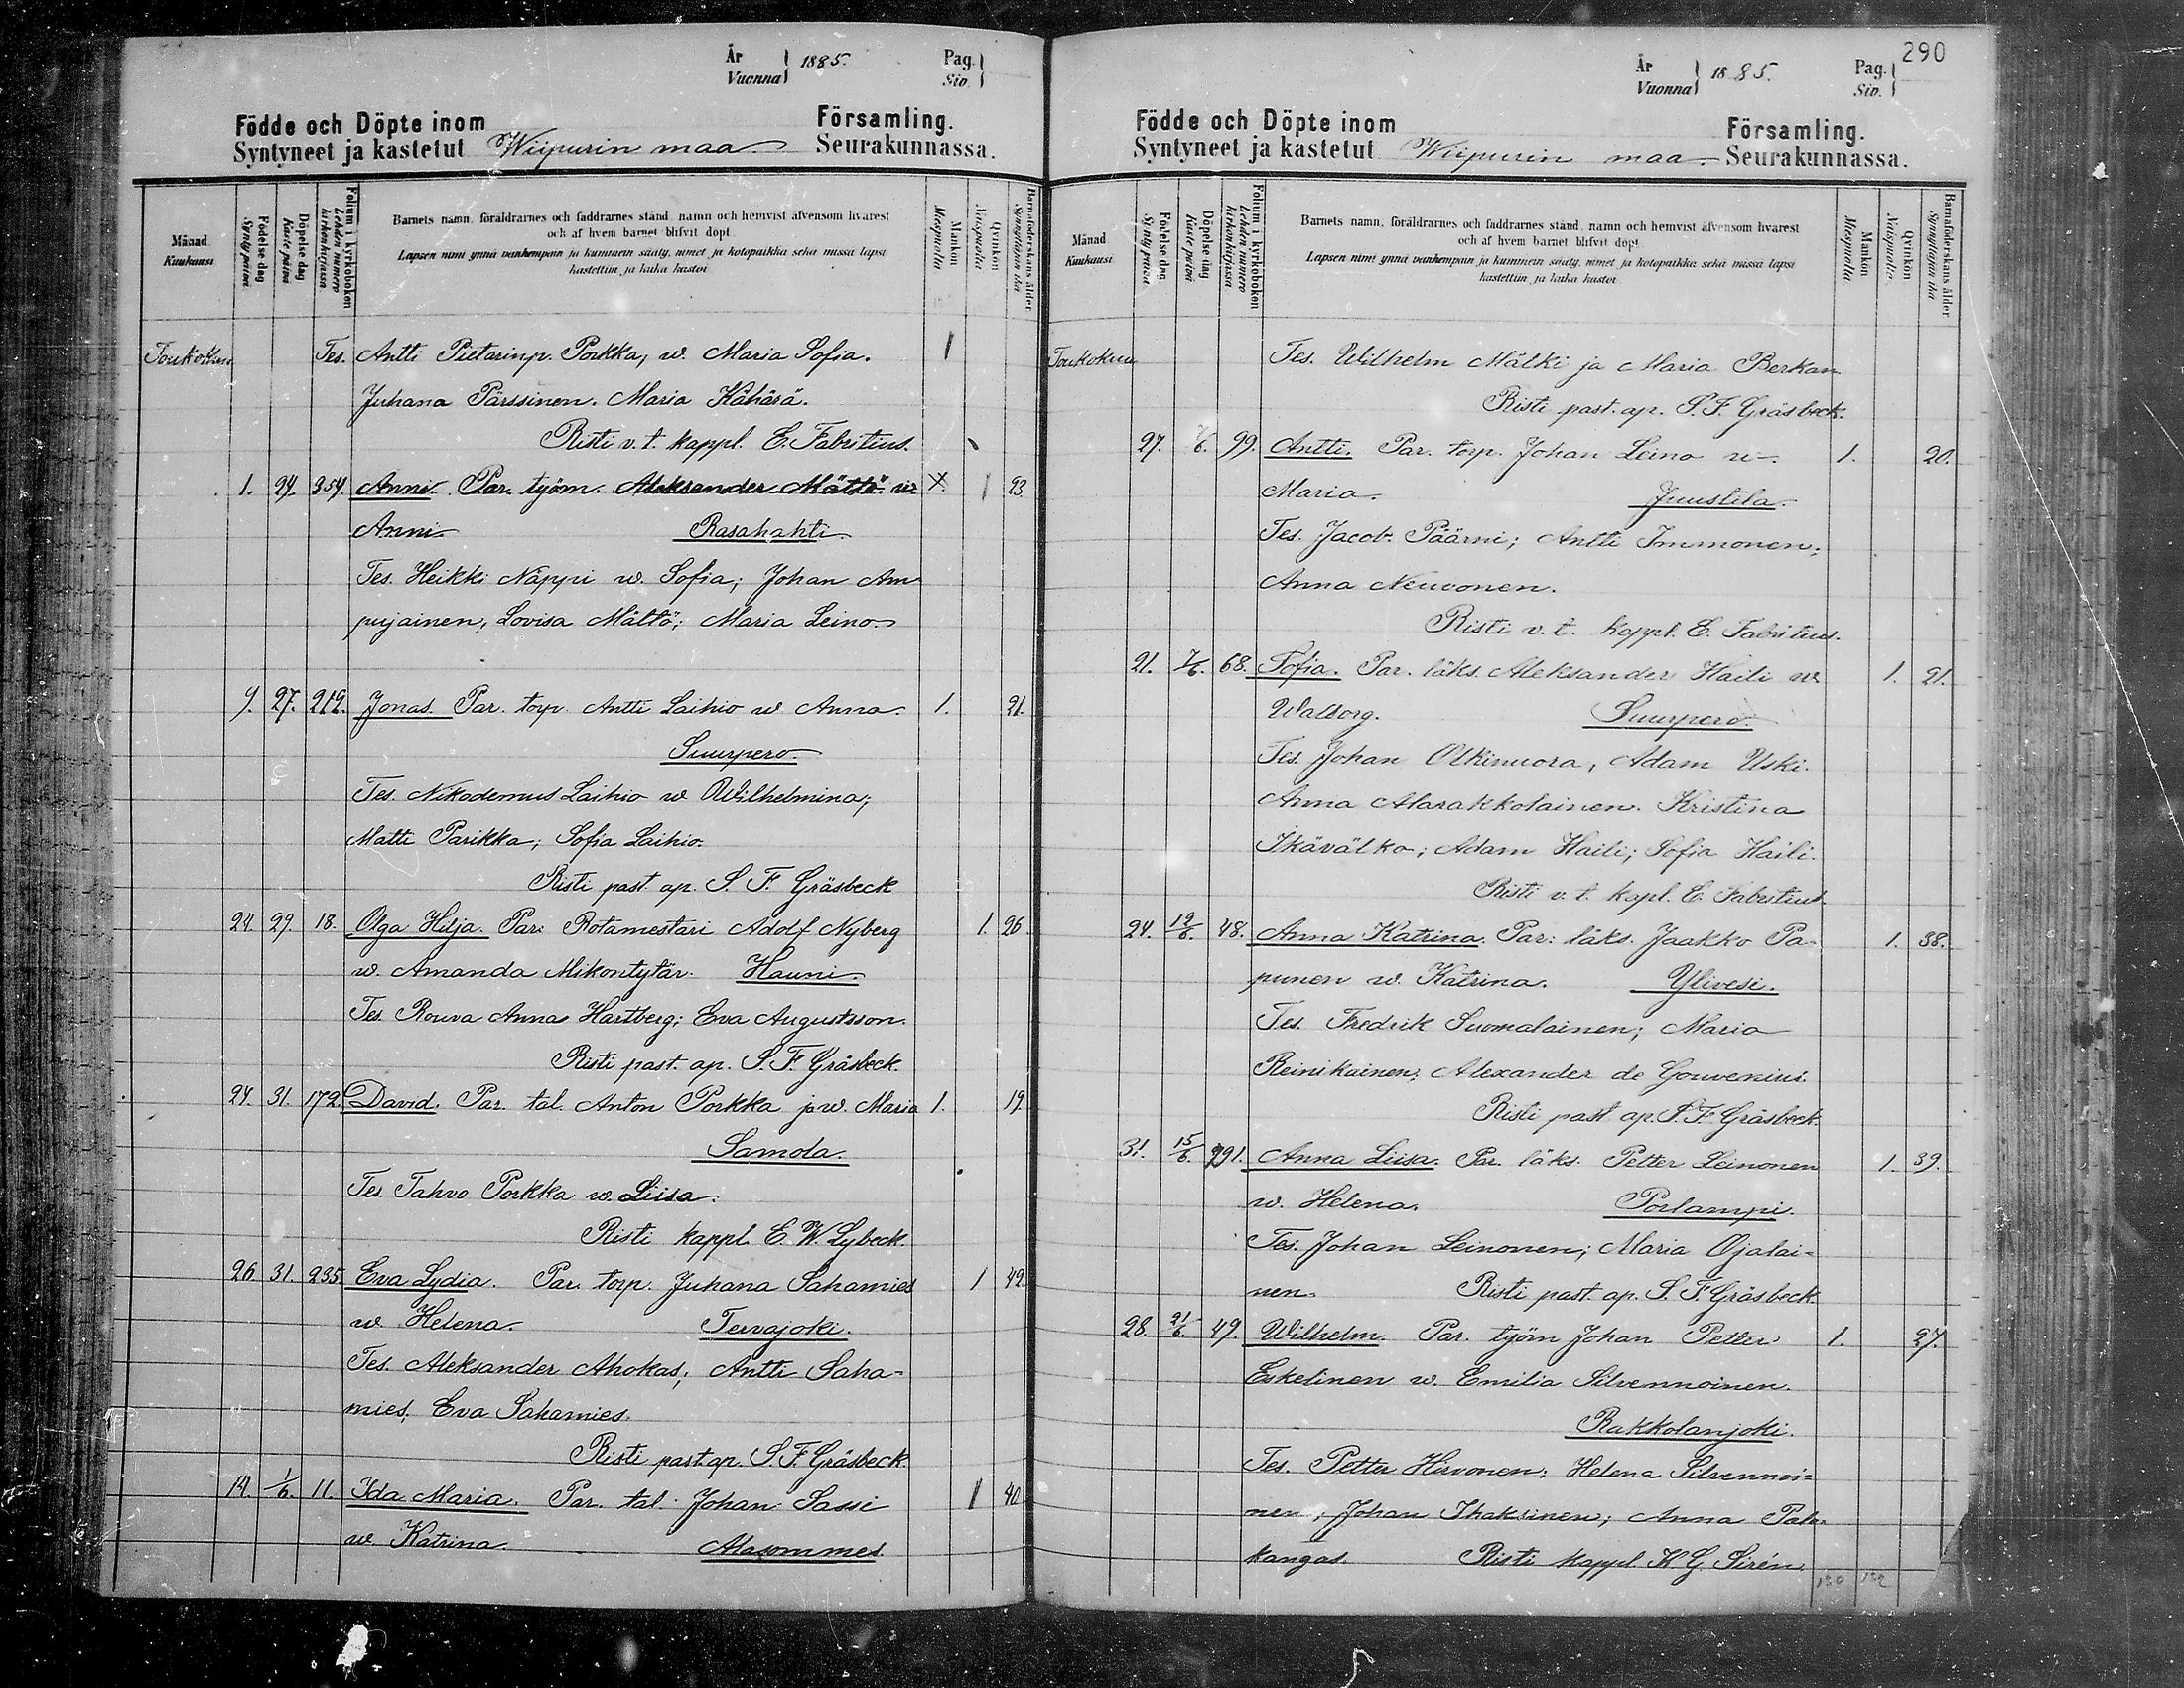 År
Vuonna } 1885.
Pag.
Siv. }
Födde och Döpte inom Församling.
Syntyneet ja kastetut Wiipurin maa Seurakunnassa.
Månad
Kuukausi
Födelse dag
Synty päivä
Döpelse dag
Kaste päivä
Folium i kyrkoboken
Lehden numero
kirkonkirjassa
Barnets namn, föräldrarnes och faddrarnes stånd, namn och hemvist äfvensom hvarest
och af hvem barnet blifvit döpt
Lapsen nimi ynnä vanhempain ja kummein sääty, nimet ja kotopaikka sekä missä lapsi
kastettiin ja kuka kastoi
Mankön
Miespuolia
Qvinkön
Naispuolia
Barnaföderskans ålder
Synnyttäjän ikä
Toukokuu Tes. Antti Pietarinp. Porkka, w. Maria Sofia. 1
Juhana Pärssinen. Maria Kähärä.
Risti v.t. kappl. E. Fabritius.
1. 24. 354. Anni. Par. työm. Aleksander Mättö w. X 1 23
Anni. Rasahahti
Tes. Heikki Näppi w. Sofia; Johan Am-
pujainen, Lovisa Mättö; Maria Leino.
9. 27. 212. Jonas. Par. torp. Antti Laihio w Anna. 1. 21.
Suurpero.
Tes. Nikodemus Laihio w Wilhelmina;
Matti Parikka; Sofia Laihio.
Risti past. ap. S. F. Gräsbeck
24. 29. 18. Olga Hilja. Par. Rotamestari Adolf Nyberg 1. 26.
w. Amanda Mikontytär. Hauni.
Tes. Rouva Anna Hartberg; Eva Augustsson.
Risti past. ap. S. F. Gräsbeck.
24. 31. 172. David. Par. tal. Anton Porkka ja w. Maria 1. 19.
Samola.
Tes. Tahvo Porkka w. Liisa.
Risti kappl. E. W. Lybeck.
26. 31. 235. Eva Lydia. Par. torp. Juhana Sahamies 1 42.
w. Helena. Tervajoki.
Tes. Aleksander Ahokas; Antti Saha-
mies, Eva Sahamies.
Risti past. ap. S. F. Gräsbeck
14. 1/6. 11. Ida Maria. Par. tal. Johan Sassi 1 40
w Katrina Alasommes.
290
År
Vuonna } 1885.
Pag.
Siv. }
Födde och Döpte inom Församling.
Syntyneet ja kastetut Wiipurin maa. Seurakunnassa.
Månad
Kuukausi
Födelse dag
Synty päivä
Döpelse dag
Kaste päivä
Folium i kyrkoboken
Lehden numero
kirkonkirjassa
Barnets namn, föräldrarnes och faddrarnes stånd, namn och hemvist äfvensom hvarest
och af hvem barnet blifvit döpt
Lapsen nimi ynnä vanhempain ja kummein sääty, nimet ja kotopaikka sekä missä lapsi
kastettiin ja kuka kastoi
Mankön
Miespuolia
Qvinkön
Naispuolia
Barnaföderskans ålder
Synnyttäjän ikä
Toukokuu Tes. Wilhelm Mälki ja Maria Berkan
Risti past. ap. S. F. Gräsbeck.
27. 7/6. 99. Antti. Par. torp. Johan Leino w. 1. 20.
Maria. Juustila.
Tes. Jacob. Päärni; Antti Immonen;
Anna Neuvonen.
Risti v.t. kappl. E. Fabritius.
21. 7/6. 68. Sofia. Par. läks. Aleksander Haili w. 1. 21.
Walborg. Suurpero.
Tes. Johan Olkinuora, Adam Uski.
Anna Alarakkolainen. Kristina
Ikävalko; Adam Haili; Sofia Haili.
Risti v. t. kapl. E. Fabritius.
24. 12/6. 48. Anna Katrina. Par: läks. Jaakko Pa- 1. 38.
punen w. Katrina. Ylivesi.
Tes. Fredrik Suomalainen; Maria
Reinikainen; Alexander de Gouvenius.
Risti past ap. S. F. Gräsbeck.
31. 15/6. 291. Anna Liisa. Par. läks. Petter Leinonen 1. 39.
w. Helena. Porlampi.
Tes. Johan Leinonen; Maria Ojalai-
nen. Risti past. ap. S. F. Gräsbeck.
28. 21/6. 49. Wilhelm. Par. työm Johan Petter 1. 27.
Eskelinen w. Emilia Silvennoinen.
Rakkolanjoki.
Tes. Petter Hirvonen; Helena Silvennoi-
nen, Johan Ihaksinen; Anna Palo-
kangas. Risti kappl. K. G. Sirén.
130 132